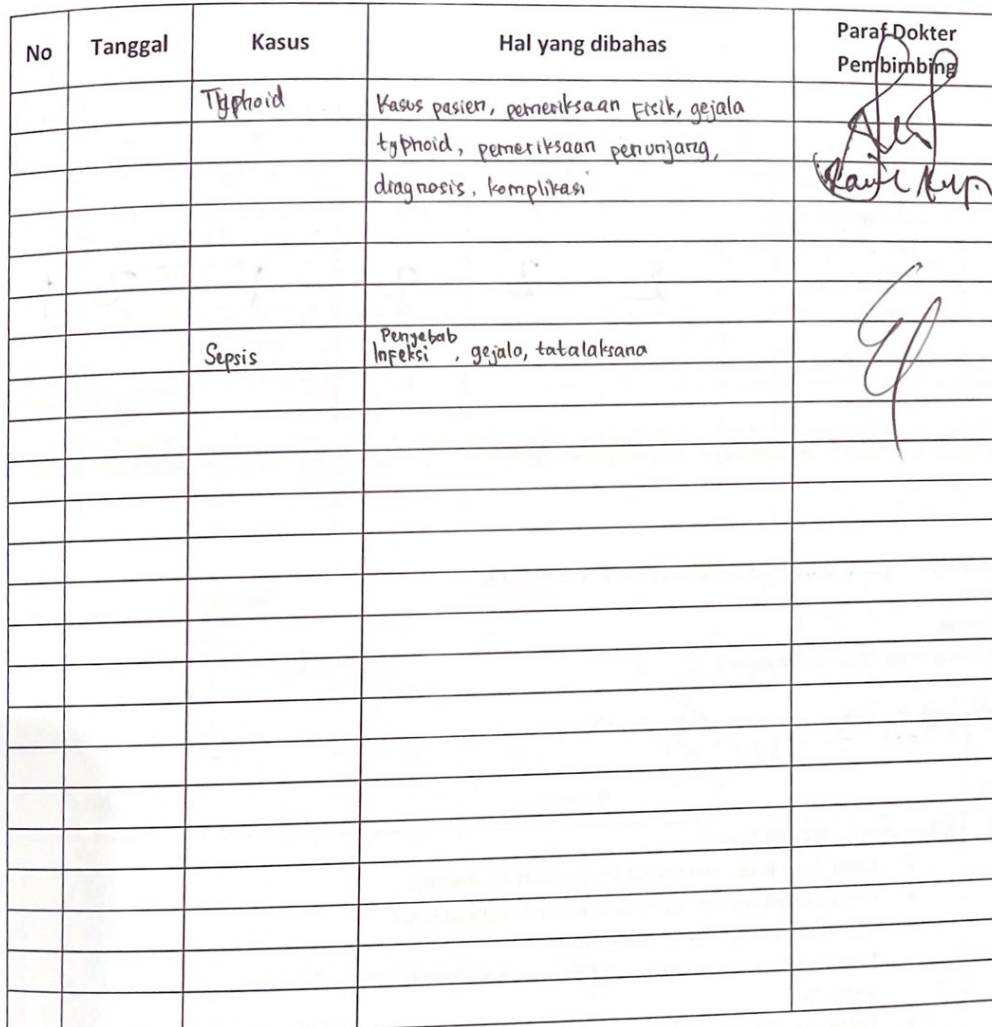 No Tanggal Kasus Hal yang dibahas Paraf Dokter Pembimbing
Typhoid Kasus pasien, pemeriksaan Fisik, gejala
typhoid, pemeriksaan penunjang,
diagnosis, komplikasi
Penyebab
Sepsis Infeksi, gejala, tatalaksana